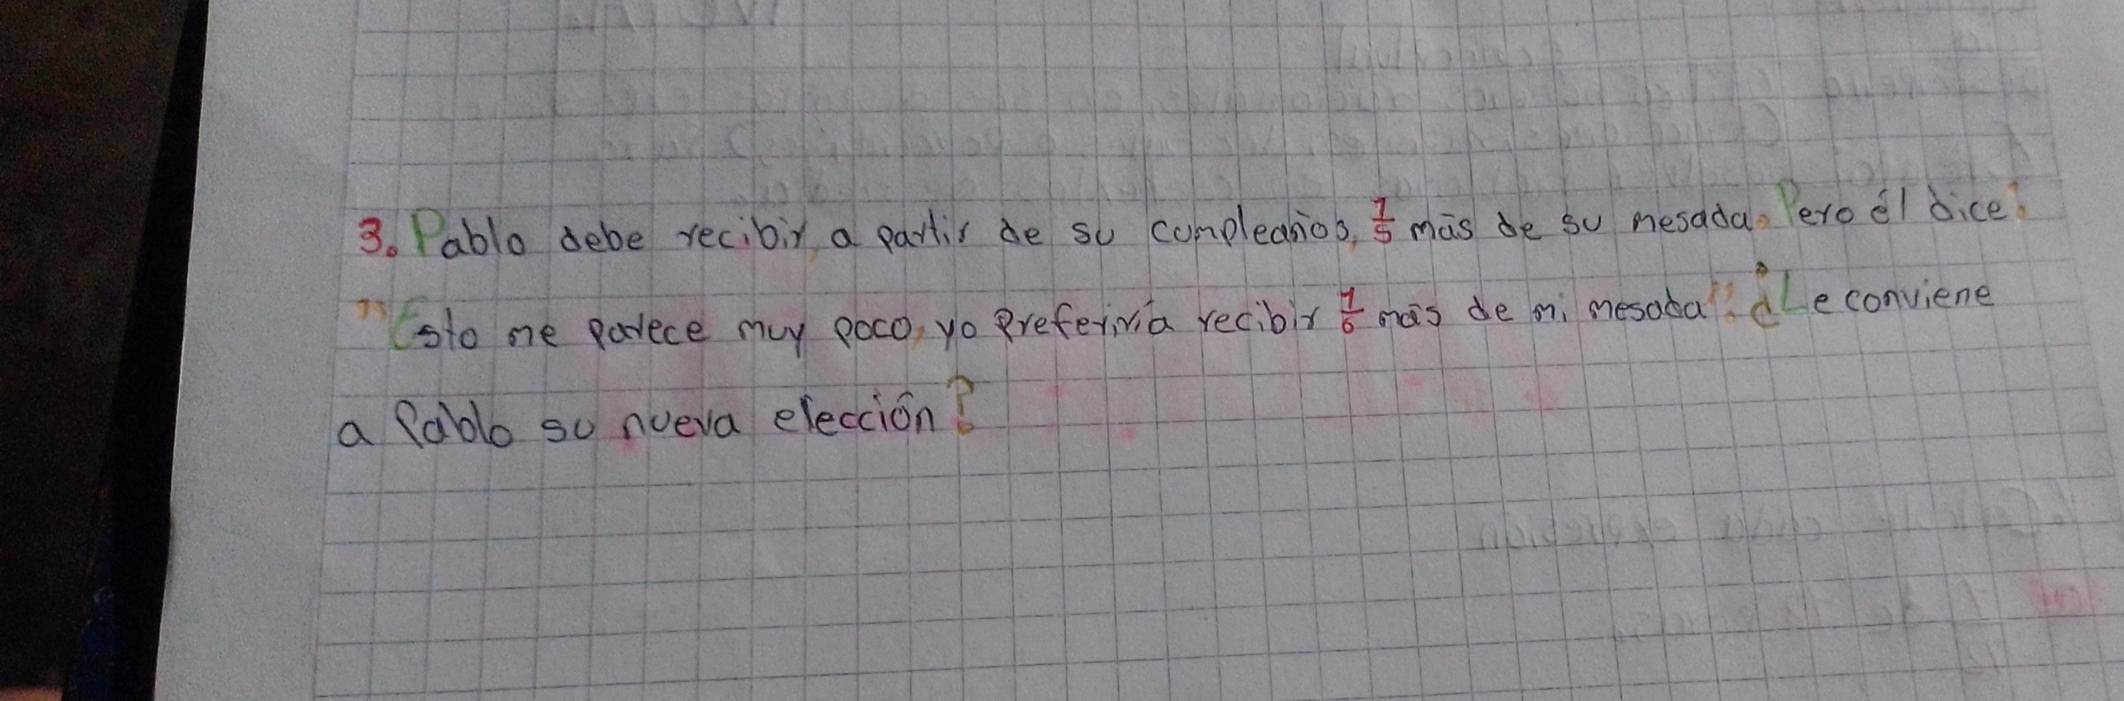 3. Pablo debe recibir, a partir de su cumpleaños, 1/5 más de su mesada. Pero él dice:
"Esto me parece muy poco, yo preferiría recibir 1/6 más de mi mesada". ¿Le conviene
a Pablo su nueva elección?